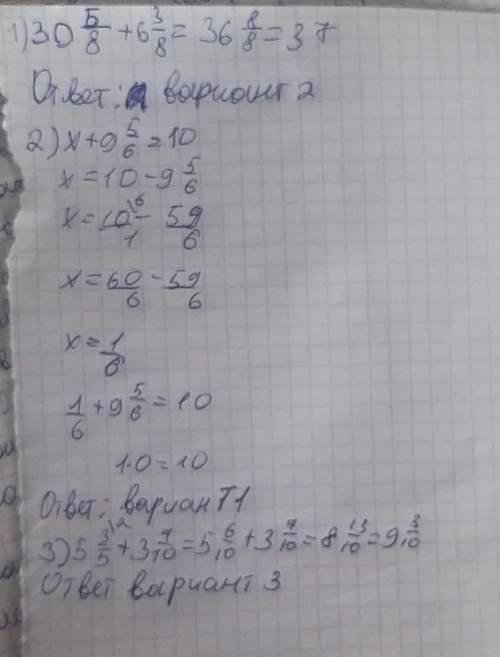 1) 30 5/8 + 6 3/8 = 36 8/8 = 37
Ответ: вариант 2
2) x + 9 5/6 = 10
x = 10 - 9 5/6
x = 10/1 \6 - 59/6
x = 60/6 - 59/6
x = 1/6
1/6 + 9 5/6 = 10
10 = 10
Ответ: вариант 1
3) 5 3/5 \2 + 3 7/10 = 5 6/10 + 3 7/10 = 8 13/10 = 9 3/10
Ответ вариант 3